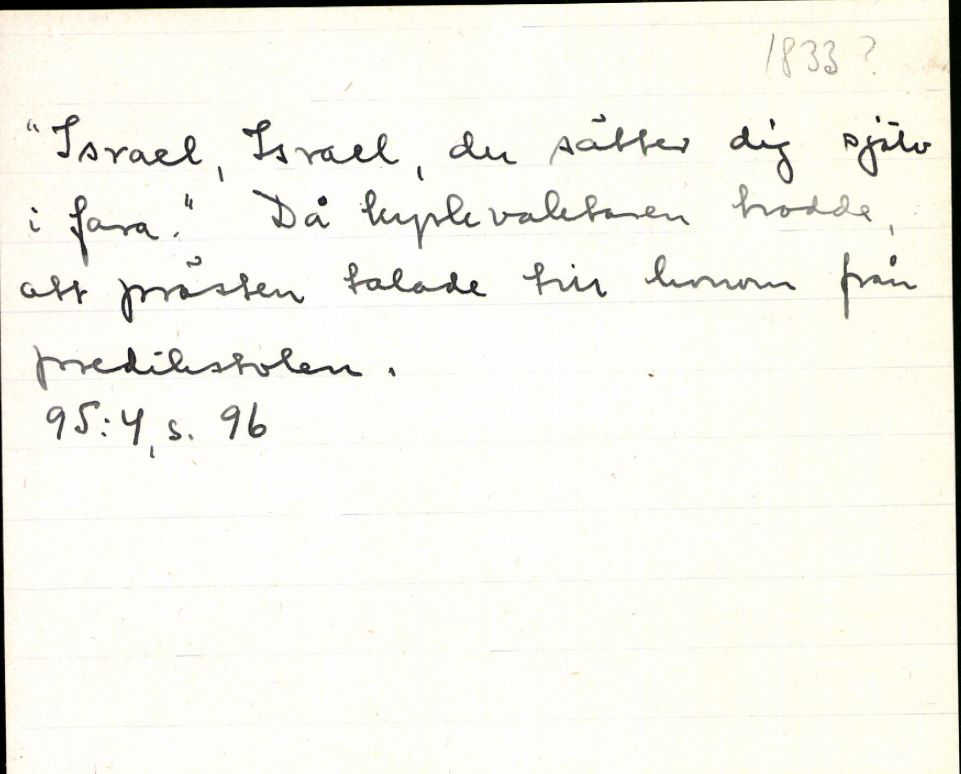 1833?
"Israel, Israel, du sätter dig själv
i fara." Då kyrkvaktaren trodde,
att prästen talade till honom från
predikstolen.
95:4, s. 96